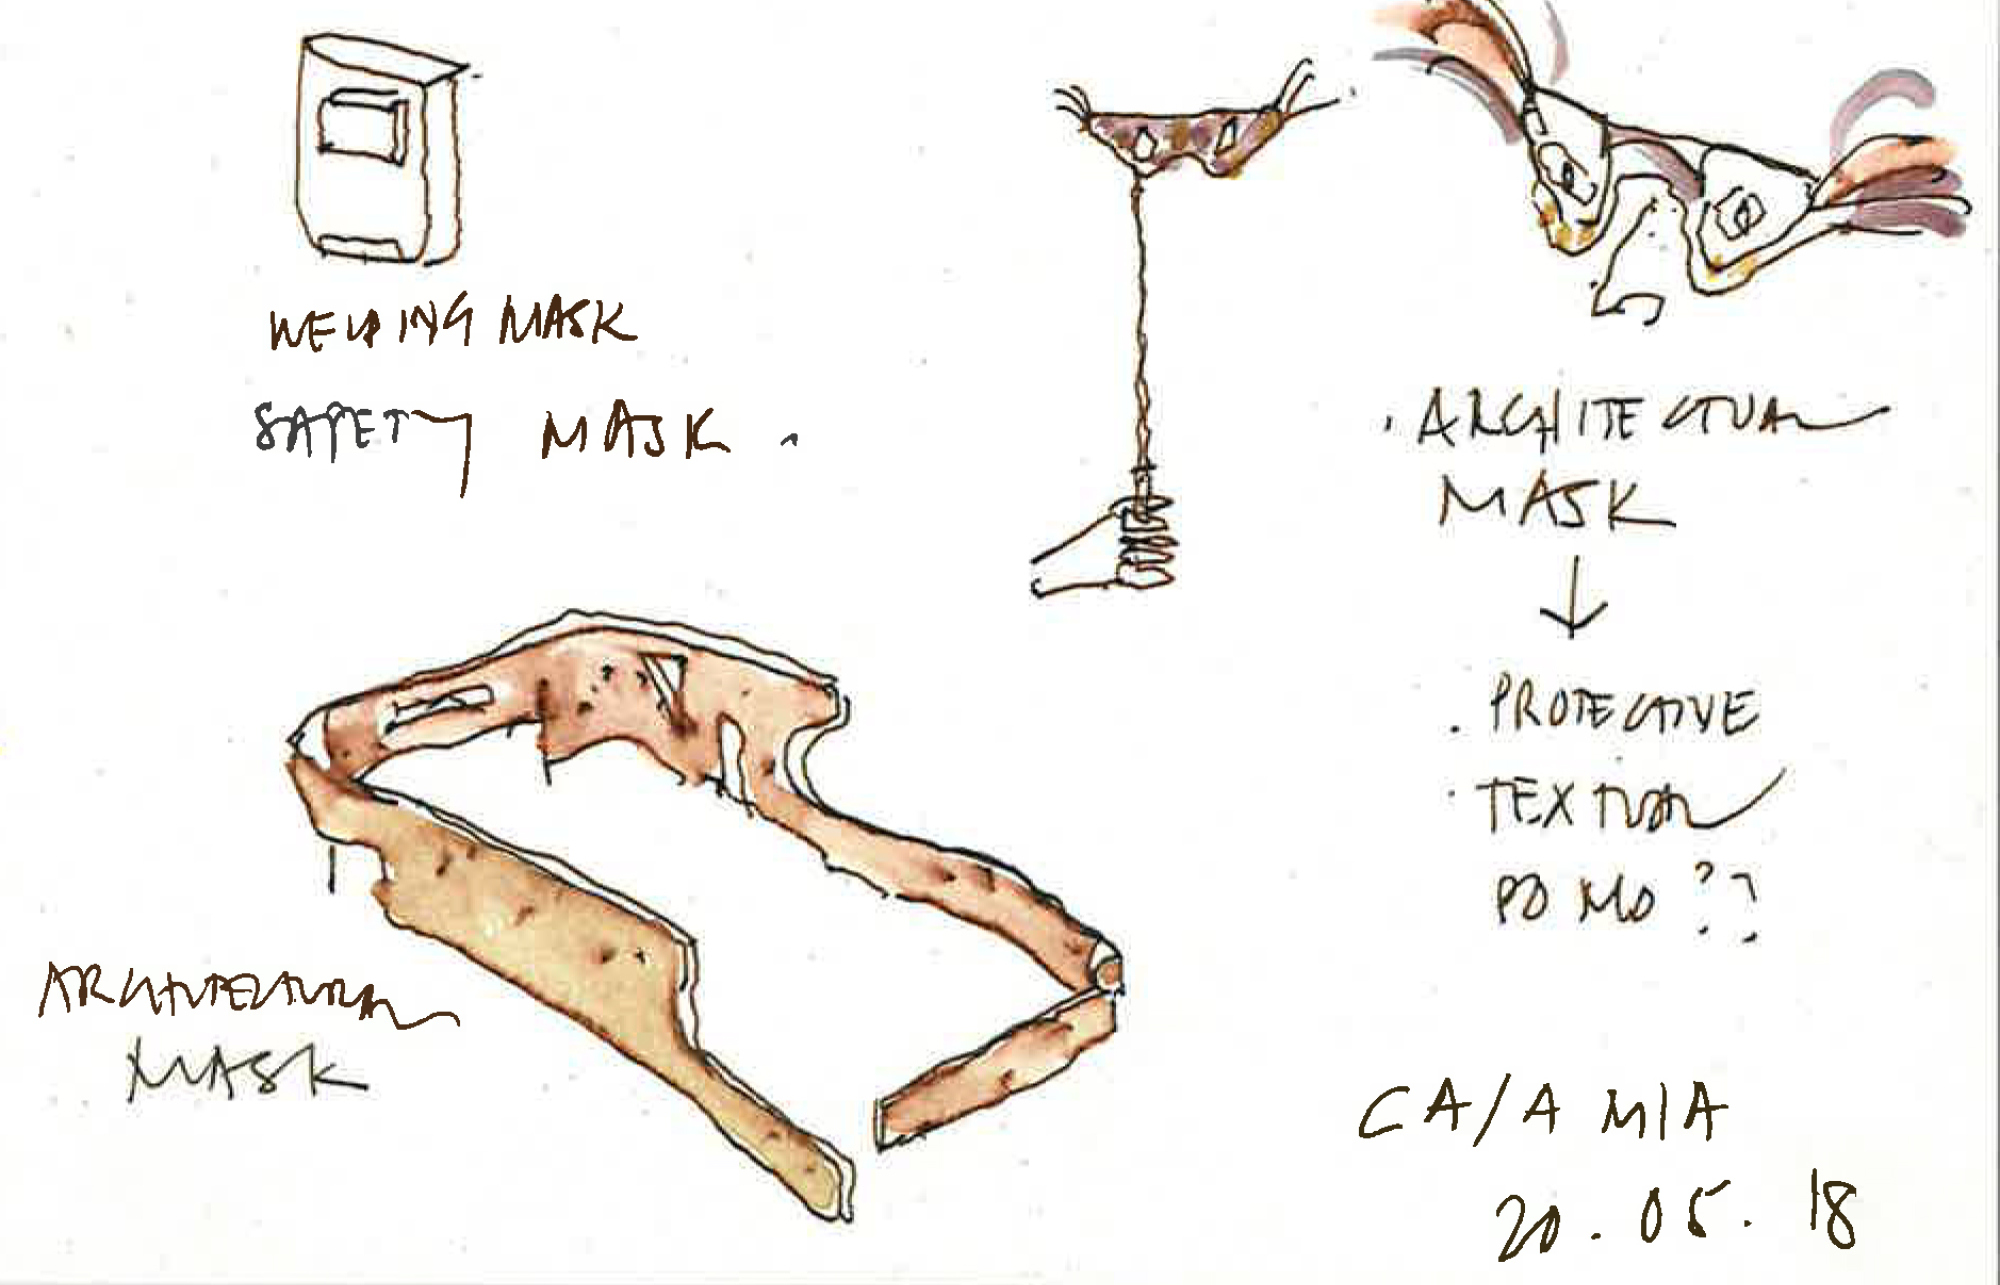 WELDING MASK
SAFETY MASK.
. ARCHITECTURAL
MASK
. PROTECTIVE
. TEXTURAL
PO MO ??
ARCHITECTURAL
MASK
CA/A MIA
20.05.18